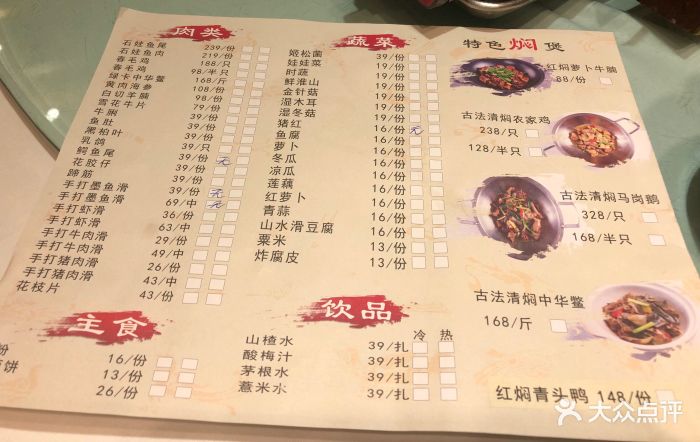 肉类
石蛙鱼尾 239/份
石蛙鱼肉 219/份
春毛鸡 188/只
春毛鸡 98/半只
绿卡中华鳖 168/斤
黄肉海参 108/份
白切羊腩 98/份
雪花牛片 79/份
牛脷 39/份
鱼肚 39/份
黑柏叶 39/份
乳鸽 39/只
鳄鱼尾 39/份
花胶仔 39/份 无
蹄筋 39/份
手打墨鱼滑 39/份 无
手打墨鱼滑 69/中 无
手打虾滑 36/份
手打虾滑 63/中
手打牛肉滑 29/份
手打牛肉滑 49/中
手打猪肉滑 26/份
手打猪肉滑 43/中
花枝片 43/份
主食
粉 16/份
饼 13/份
26/份
蔬菜
姬松菌 39/份
娃娃菜 19/份
时蔬 19/份
鲜淮山 19/份
金针菇 19/份
湿木耳 19/份
湿冬菇 19/份
猪红 16/份 无
鱼腐 16/份
萝卜 16/份
冬瓜 16/份
凉瓜 16/份
莲藕 16/份
红萝卜 16/份
青蒜 16/份
山水滑豆腐 16/份
粟米 13/份
炸腐皮 13/份
饮品 冷 热
山楂水 39/扎
酸梅汁 39/扎
茅根水 39/扎
薏米水 39/扎
特色焖煲
红焖萝卜牛腩
88/份
古法清焖农家鸡
238/只
128/半只
古法清焖马岗鹅
328/只
168/半只
古法清焖中华鳖
168/斤
红焖青头鸭 148/份
大众点评